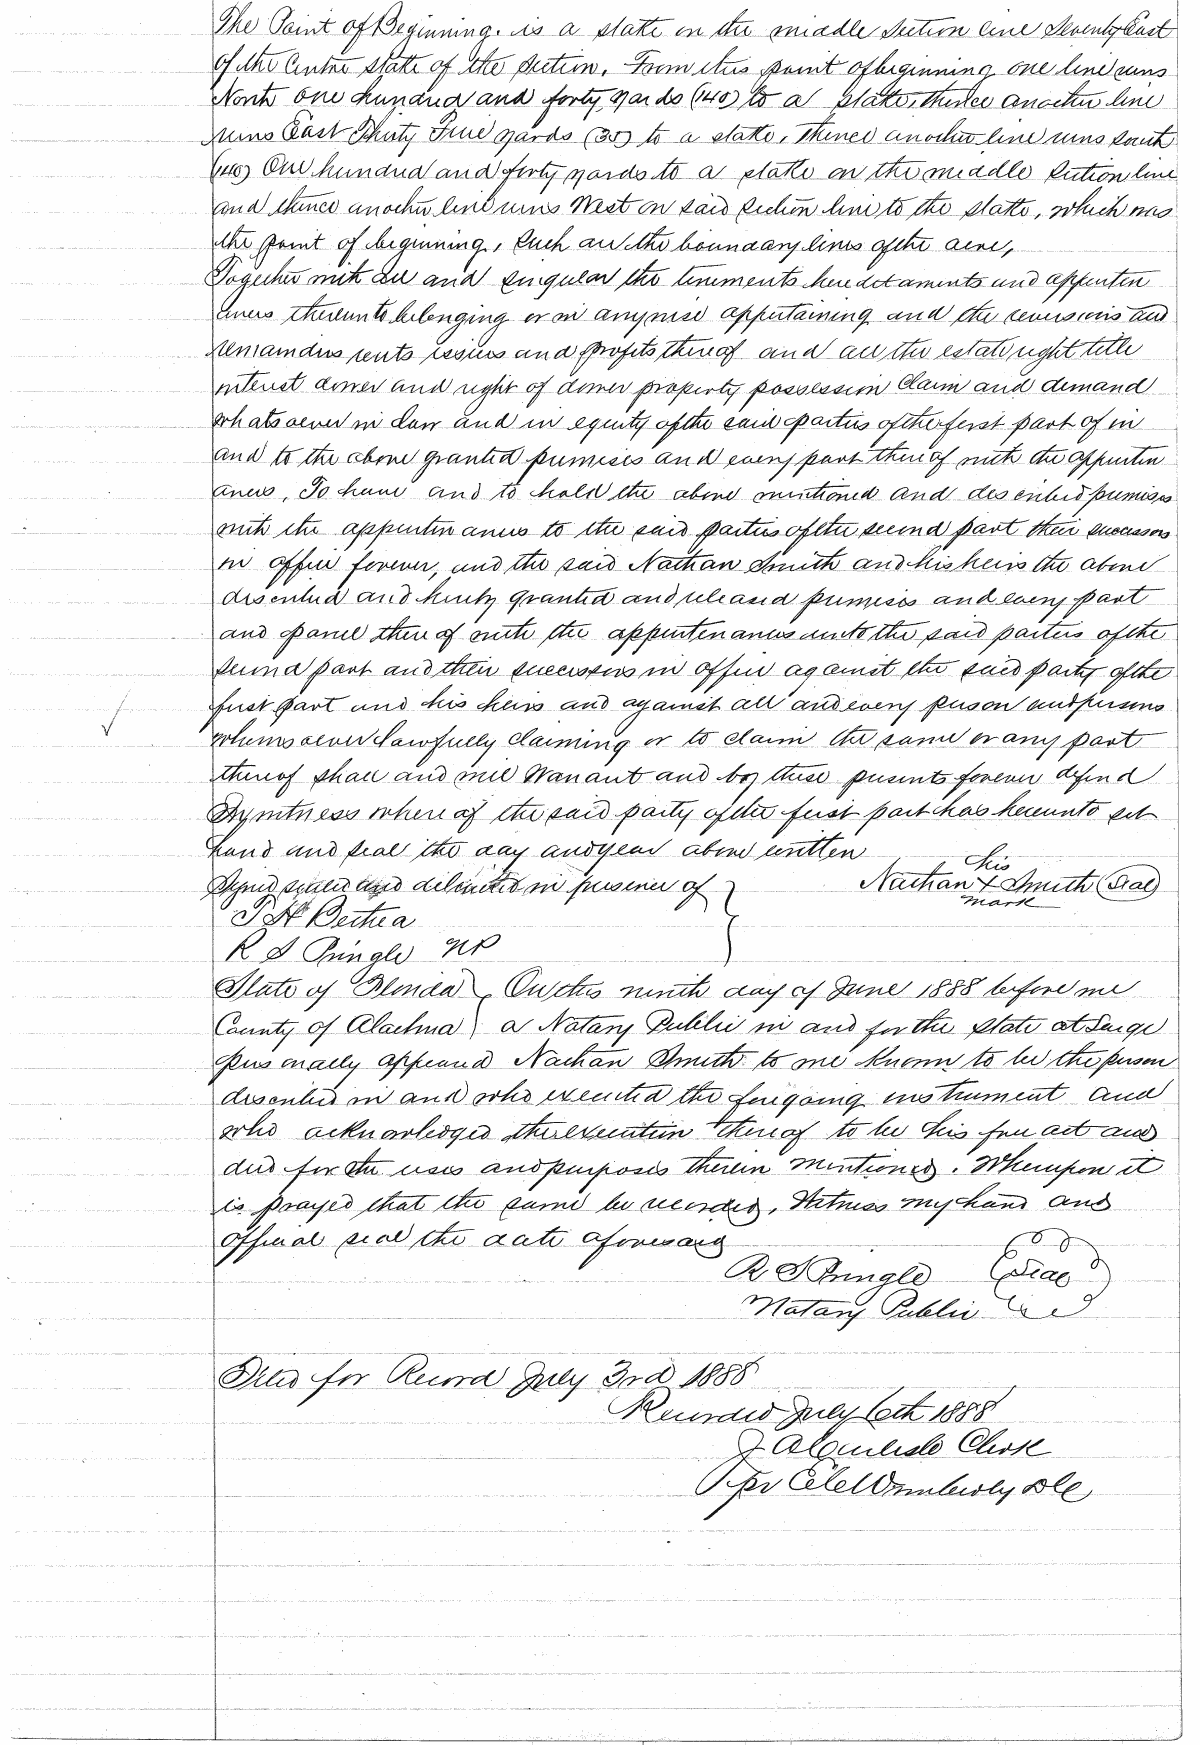 The Point of Beginning. is a stake on the middle section line Seventy East
of the Centre stake of the section. From this point of beginning one line runs
North one hundred and forty yards (140) to a stake, thence another line
runs East Thirty Five yards (35) to a stake, thence another line runs south
(140) One hundred and forty yards to a stake on the middle section line
and thence another line runs West on said section line to the stake, which was
the point of beginning, such are the boundary lines of the acre,
Together with all and singular the tenements hereditaments and appurten
ances thereunto belonging or in anywise appertaining and the reversions and
remainders rents issues and profits thereof and all the estate right title
interest dower and right of dower property possession Claim and demand
whatsoever in law and in equity of the said parties of the first part of in
and to the above granted premises and every part thereof with the appurten
ances, To have and to hold the above mentioned and described premises
with the appurtenances to the said parties of the second part their successors
in office forever, and the said Nathan Smith and his heirs the above
described and hereby granted and released premises and every part
and parcel thereof with the appurtenances unto the said parties of the
second part and their successors in office against the said party of the
first part and his heirs and against all and every person and persons
whomsoever lawfully claiming or to claim the same or any part
thereof shall and will Warrant and by these presents forever defend
In witness whereof the said party of the first part has hereunto set
hand and seal the day and year above written
his
Signed sealed and delivered in presence of } Nathan X Smith (Seal)
mark
J H Bethea
R S Pringle NP
State of Florida } On this ninth day of June 1888 before me
County of Alachua } a Notary Public in and for the State at Large
personally appeared Nathan Smith to me known to be the person
described in and who executed the foregoing instrument and
who acknowledged the execution thereof to be his free act and
deed for the uses and purposes therein mentioned. Whereupon it
is prayed that the same be recorded, Witness my hand and
official seal the date aforesaid
R S Pringle (Seal)
Notary Public
Filed for Record July 3rd 1888
Recorded July 6th 1888
J A Carlisle Clerk
Per Wimberly DC